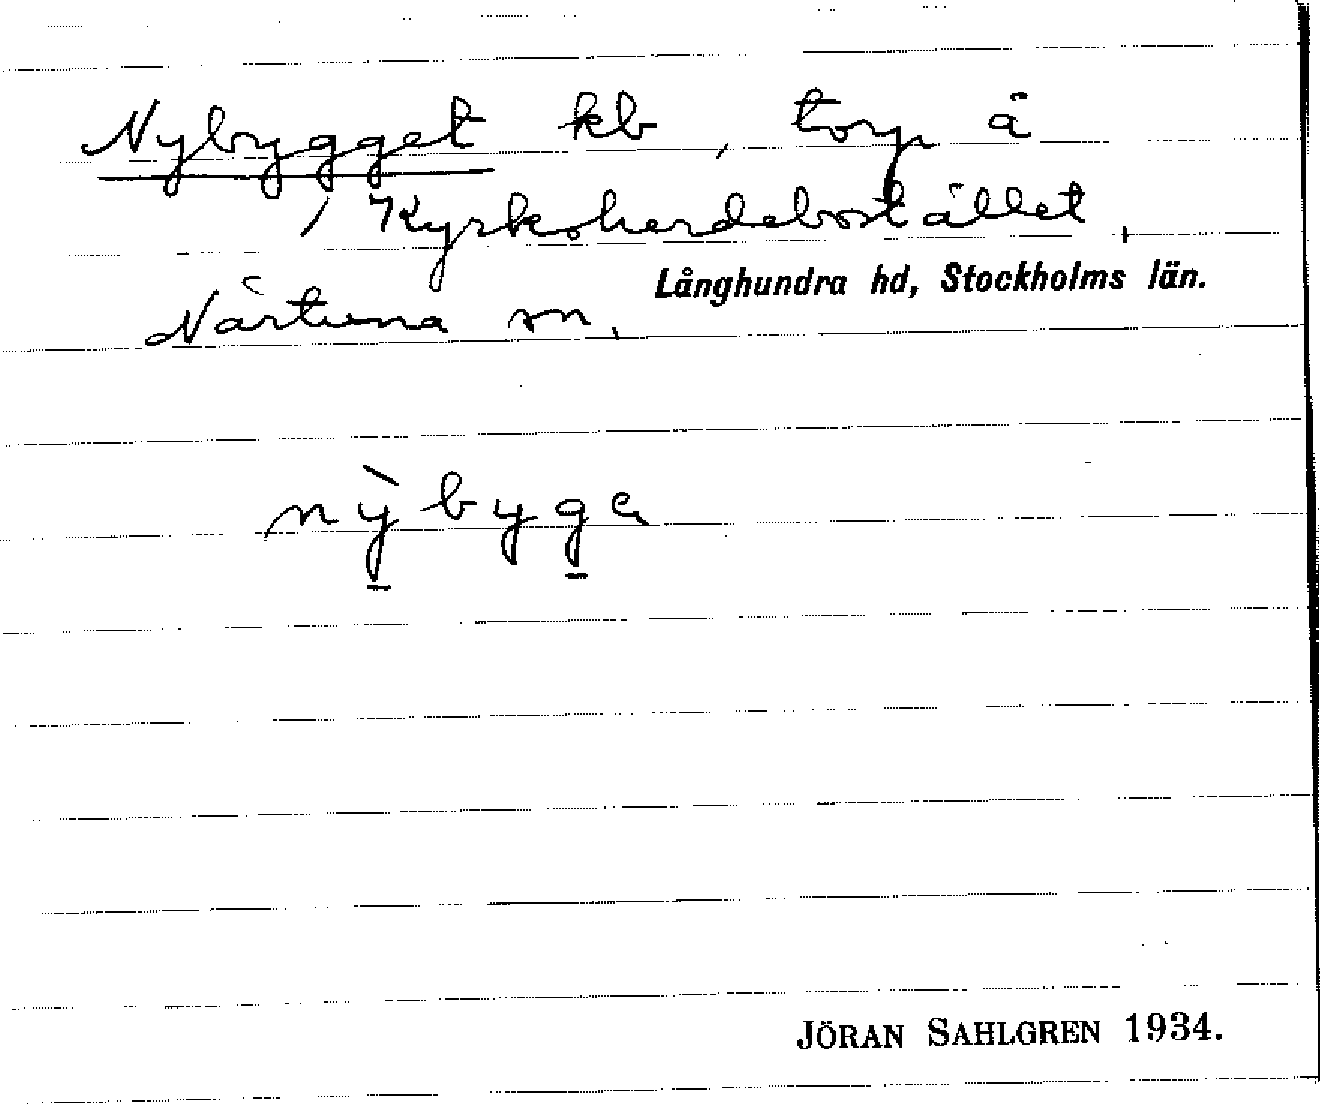 Nybygget kb, torp å
, Kyrkoherdebostället,
Långhundra hd, Stockholms län.
Närtuna sn,
nỳbyga
JÖRAN SAHLGREN 1934.